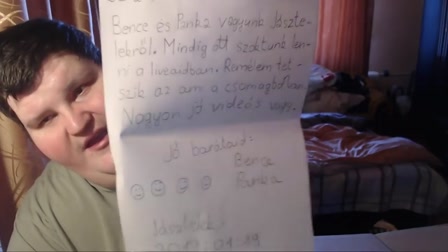 Bence és Panka vagyunk Jászte-
lekről. Mindig ott szoktunk len-
ni a liveaidban. Remélem tet-
szik az ami a csomagban van.
Nagyon jó videós vagy.
Jó barátaid:
Bence
Panka
Jásztelek,